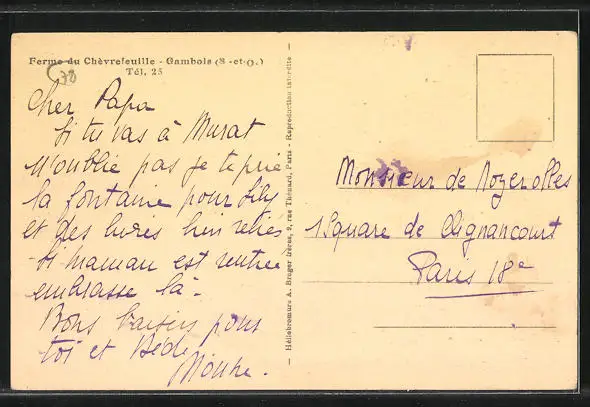 Ferme du Chèvrefeuille - Gambois (S.-et-O.)
Tél. 25
78
Cher Papa
Si tu vas à Murat
N'oublie pas je te prie
la fontaine pour Lily
et des livres bien reliés
Si maman est rentrée
embrasse là -
Bons baisers pour
toi et Bédé
Héliobromure A. Breger frères, 9, rue Thénard, Paris - Reproduction interdite
Monsieur de Nozerolles
1 Square de Clignancourt
Paris 18e